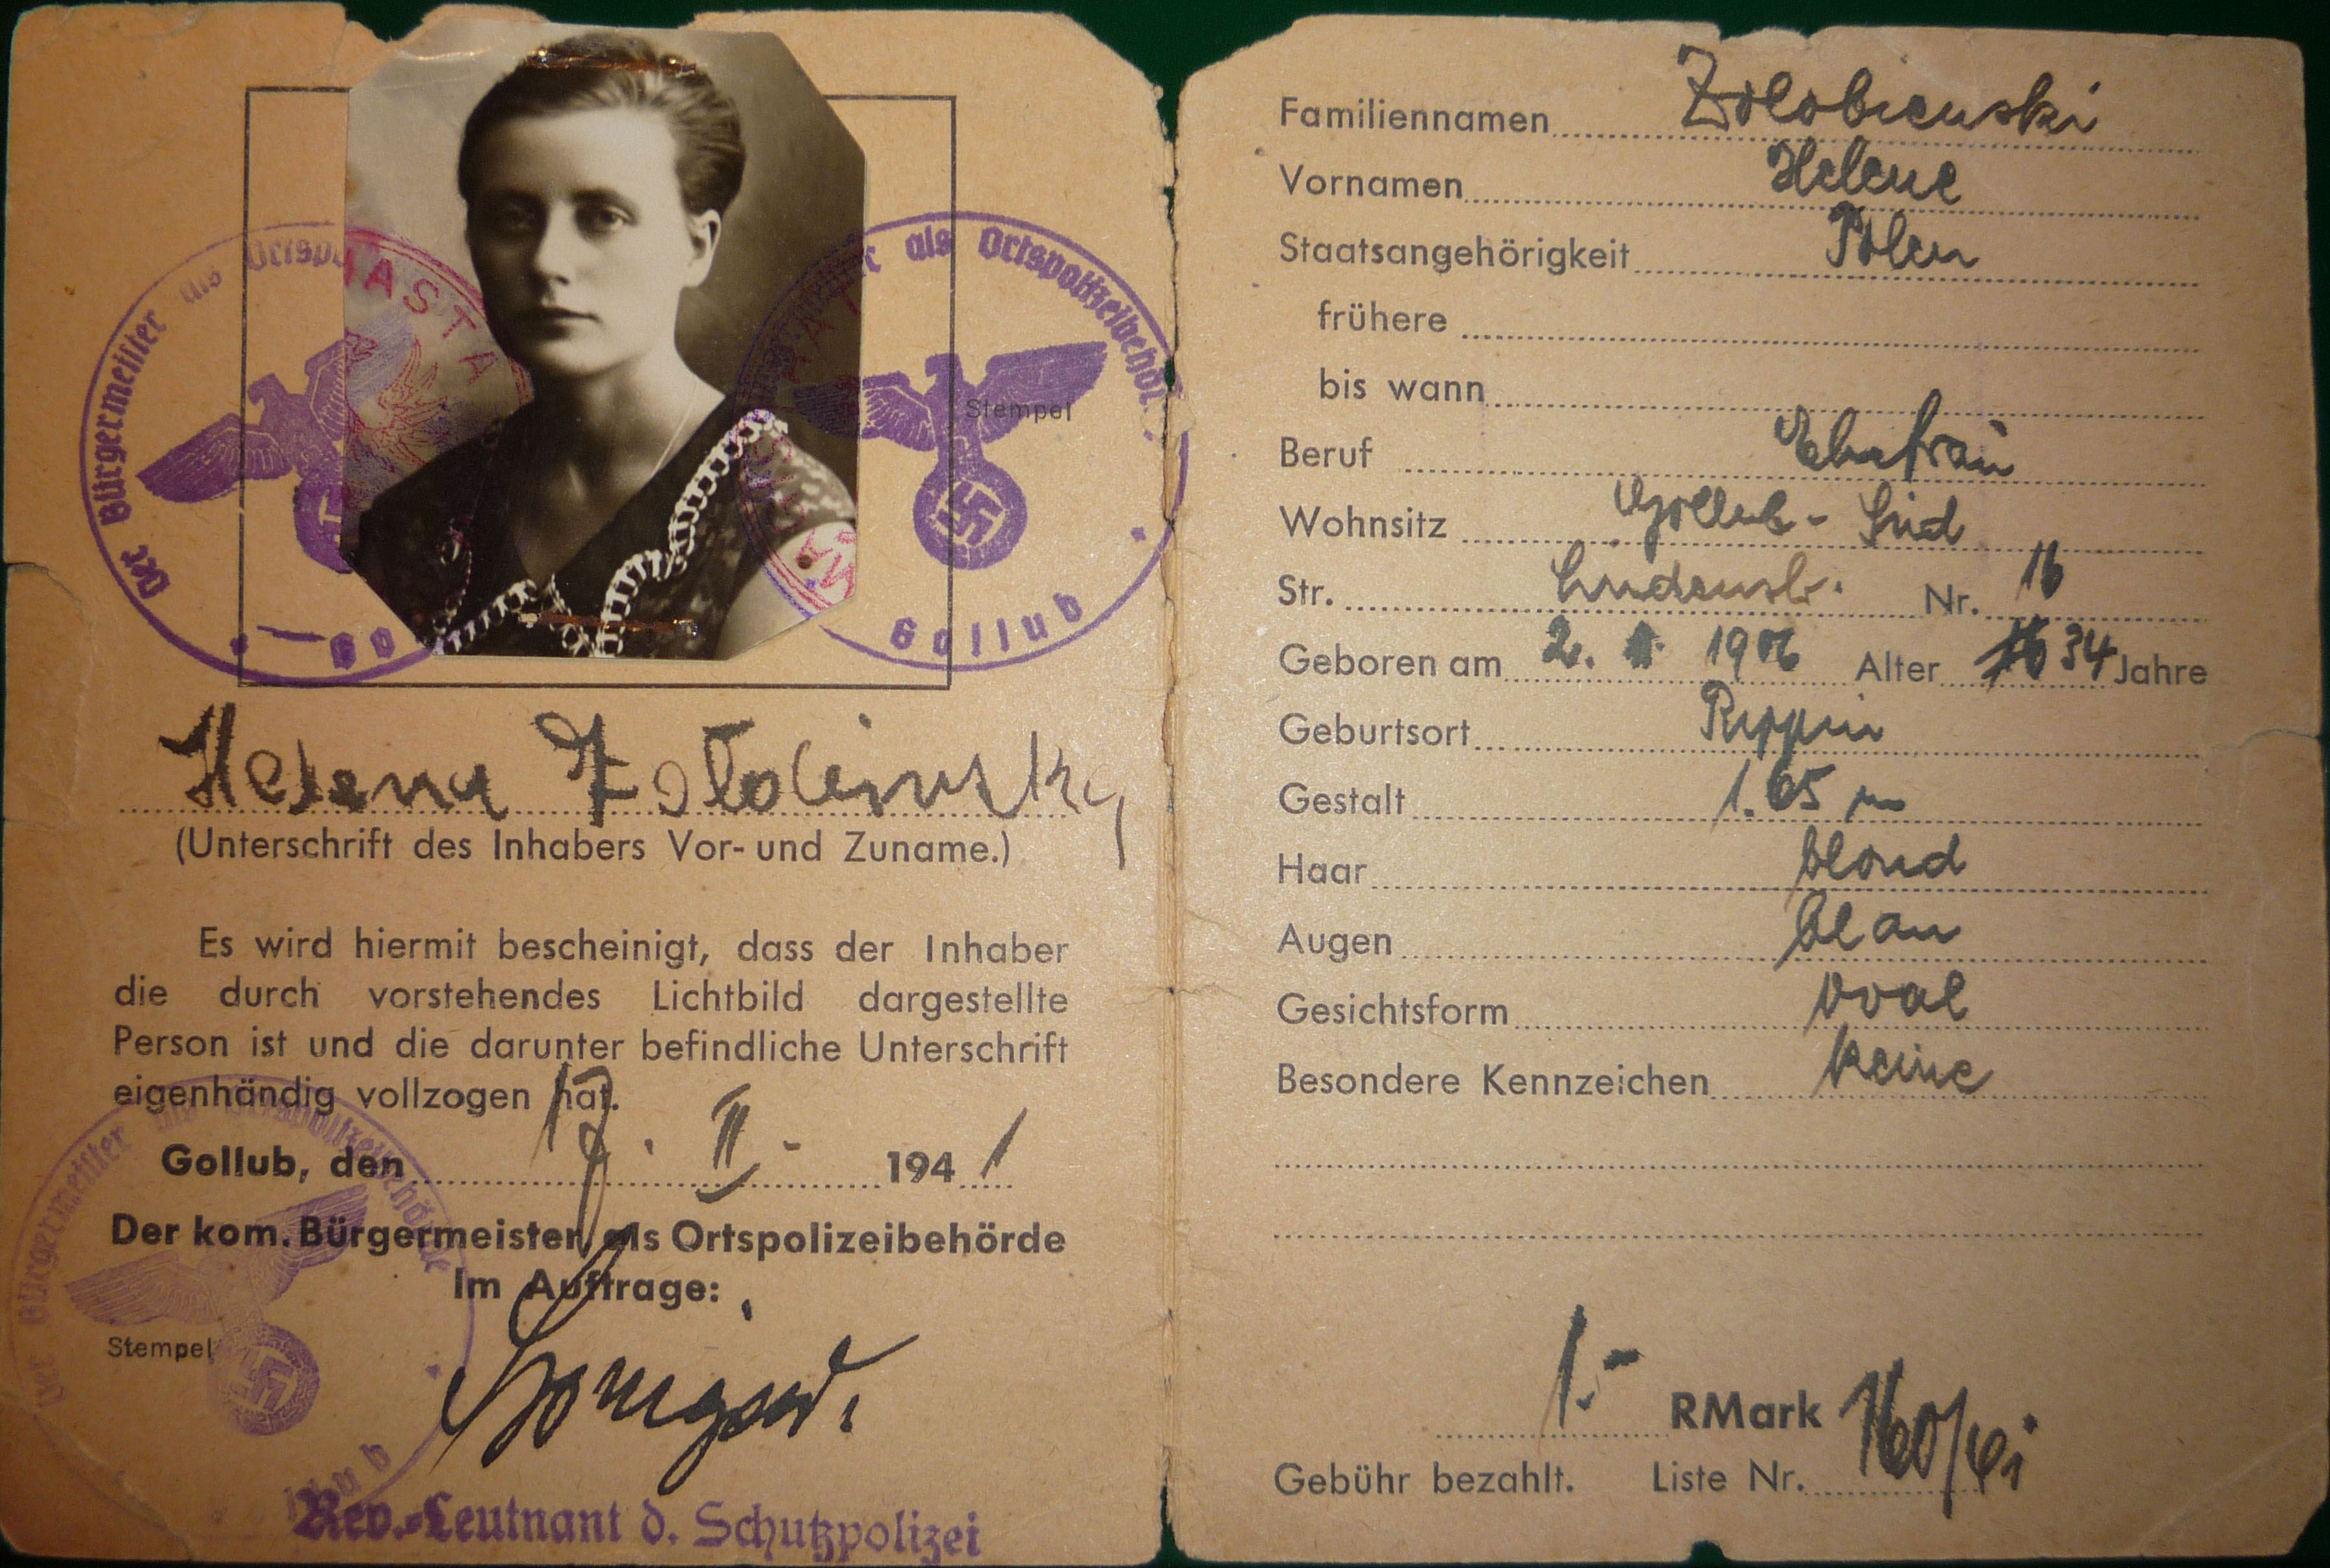 Der Bürgermeister als Ortsp
Go
MASTA
Der Bürgermeister als Ortspolizeibehör.
Gollub
Stempel
Helena
(Unterschrift des Inhabers Vor- und Zuname.)
Es wird hiermit bescheinigt, dass der Inhaber
die durch vorstehendes Lichtbild dargestellte
Person ist und die darunter befindliche Unterschrift
eigenhändig vollzogen hat.
Gollub, den 17. II. 1941
Der kom. Bürgermeister als Ortspolizeibehörde
Im Auftrage:
Stempel
Der Bürgermeister als Ortspolizeibehörde
Rev.-Leutnant d. Schutzpolizei
Familiennamen Zolobienski
Vornamen Helene
Staatsangehörigkeit Polen
frühere
bis wann
Beruf Ehefrau
Wohnsitz Gollub - Süd
Str. Nr. 16
Geboren am 2. 1906 Alter 34 Jahre
Geburtsort Rippin
Gestalt 1.65 m
Haar blond
Augen blau
Gesichtsform oval
Besondere Kennzeichen keine
1.- RMark
Gebühr bezahlt. Liste Nr.